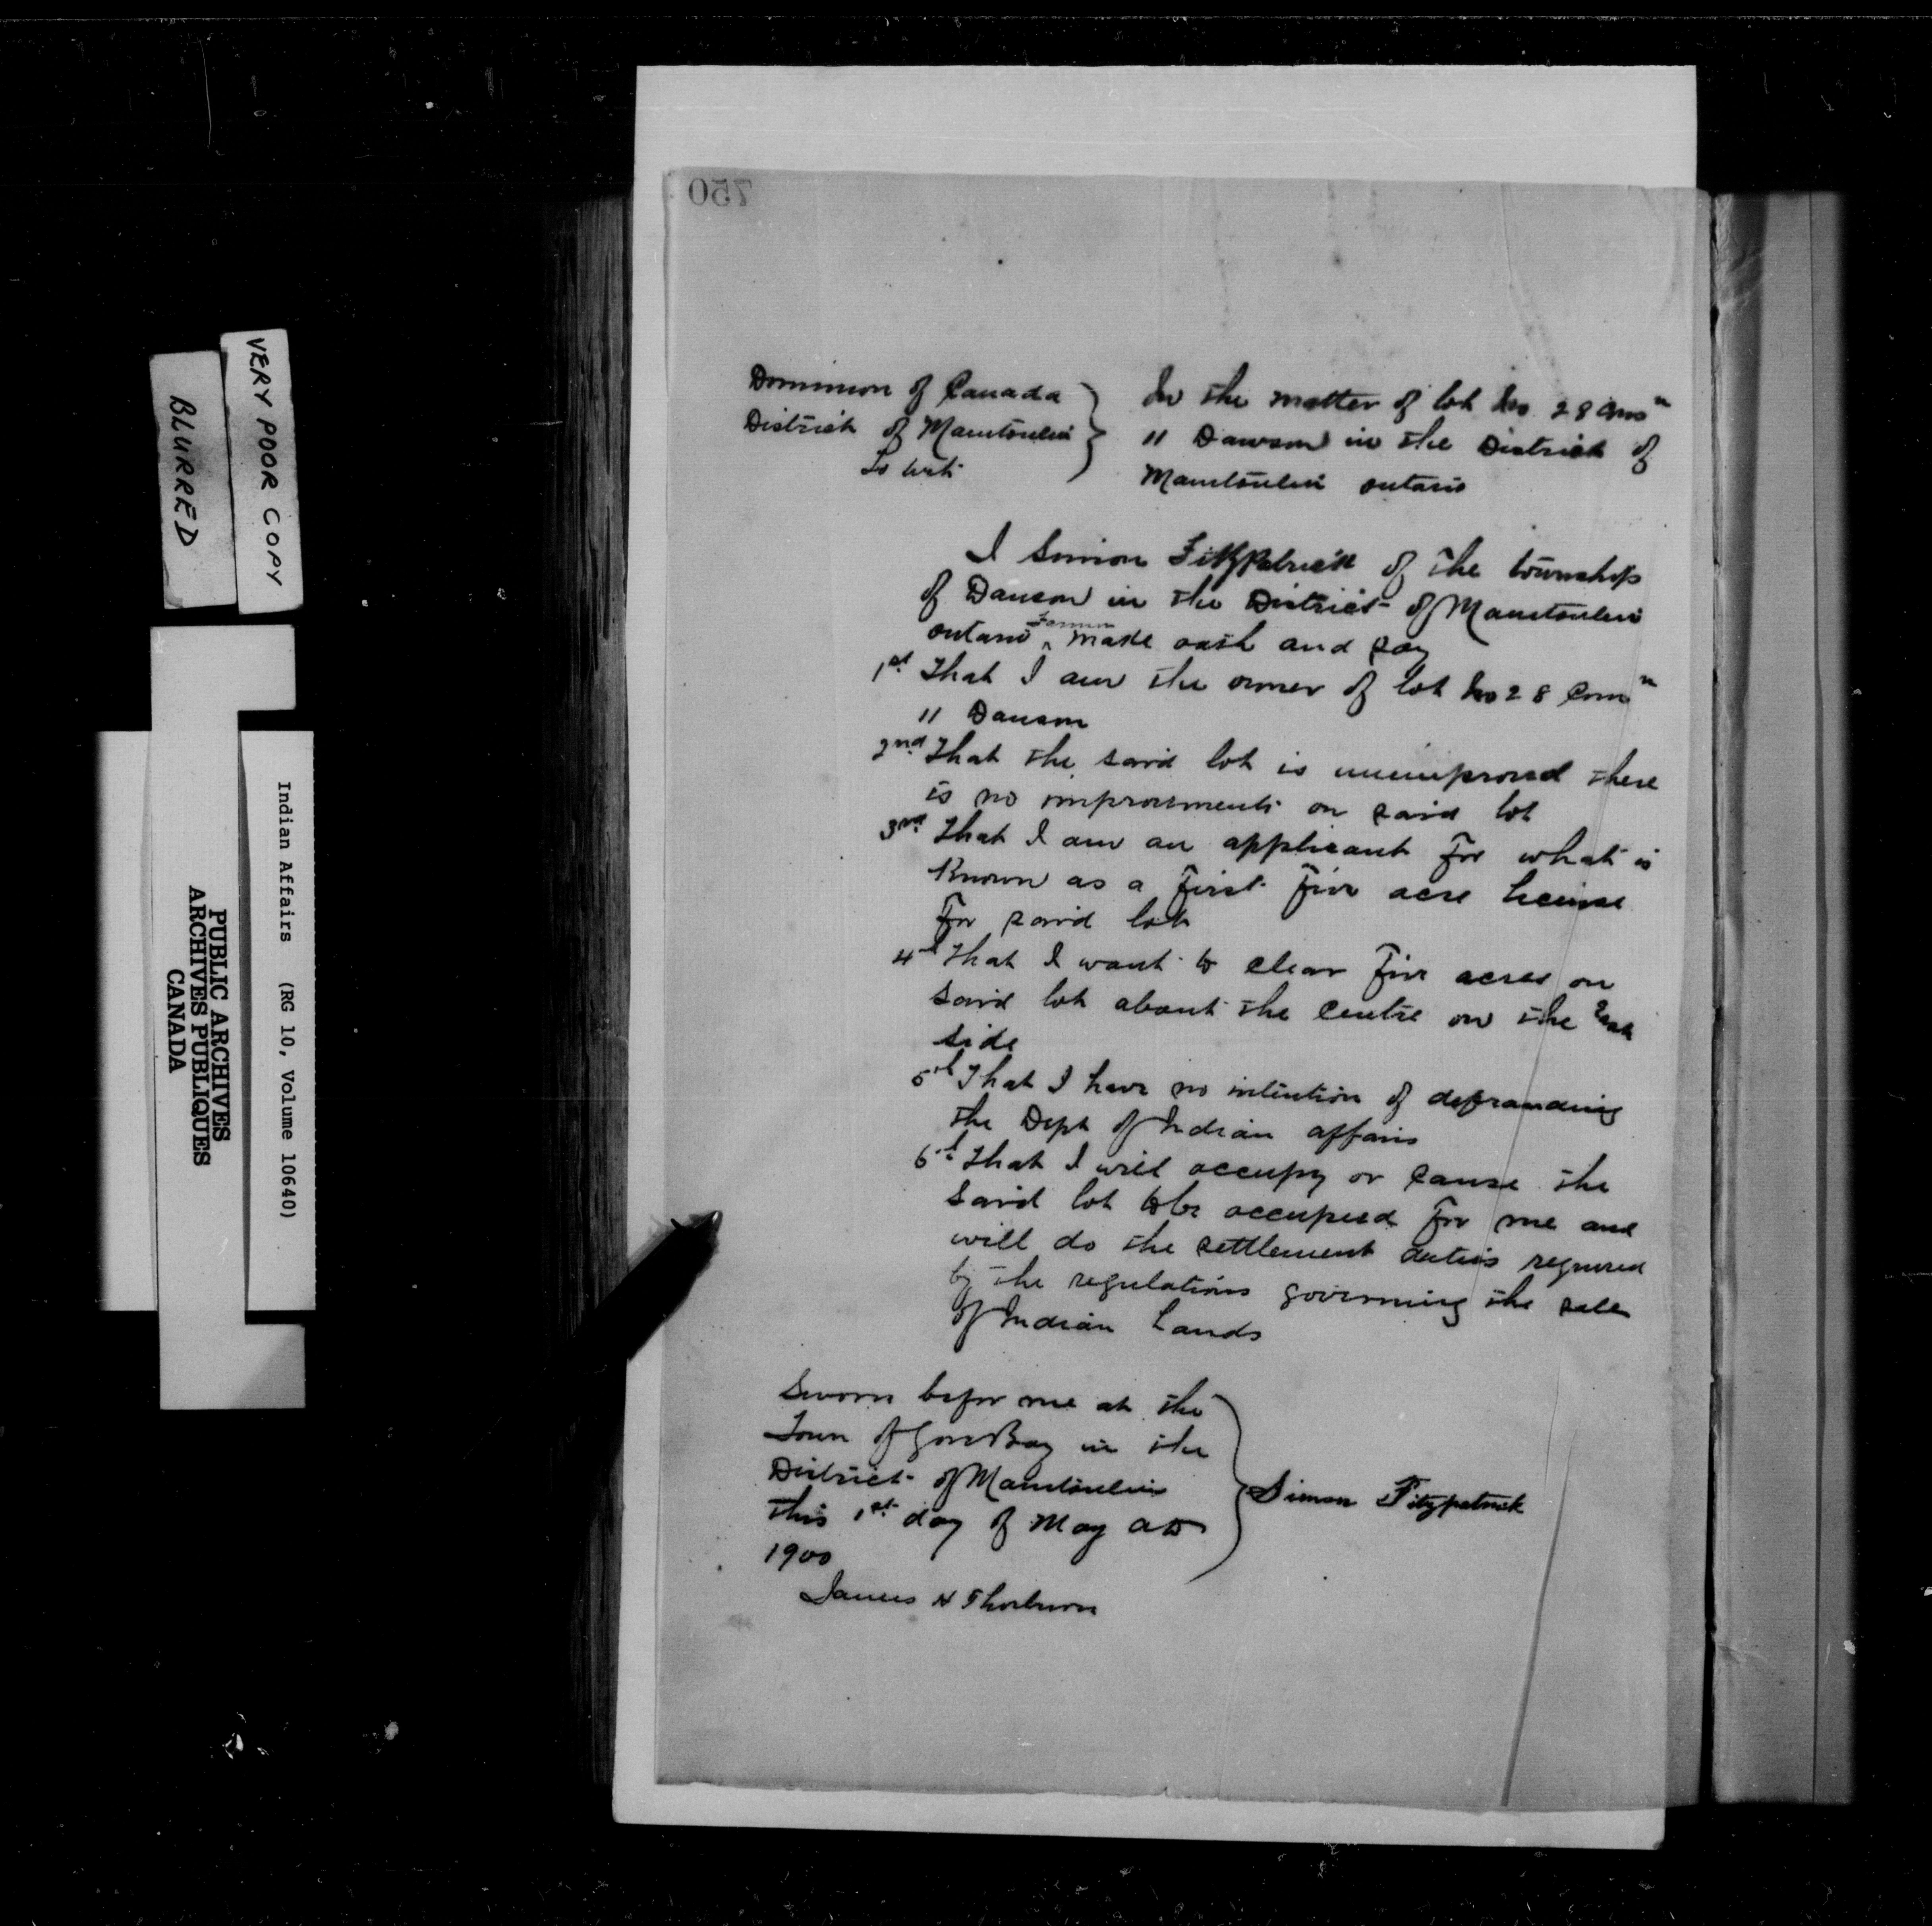 750
VERY POOR COPY
BLURRED
Indian Affairs (RG 10, Volume 10640)
PUBLIC ARCHIVES
ARCHIVES PUBLIQUES
CANADA
Dominion of Canada
District of Manitoulin
To wit
In the matter of lot No 28 Conn
11 Dawson in the District of
Manitoulin ontario
I Simon Fitzpatrick of the township
of Dawson in the District of Manitoulin
ontario Farmer make oath and say
1st That I am the owner of lot No 28 Conn
11 Dawson
2nd That the said lot is unimproved there
is no improvments on said lot
3rd That I am an applicant For what is
Known as a First Five acre license
For said lot
4th That I want to clear Five acres on
said lot about the centre on the East
side
5th That I have no intention of defrauding
the Dept of Indian affairs
6th That I will occupy or cause the
said lot to be occupied For me and
will do the settlement duties required
by the regulations governing the sale
of Indian Lands
Sworn befor me at the
Town of Gore Bay in the
District of Manitoulin
this 1st day of May AD
1900
Simon Fitzpatrick
James H Thorburn